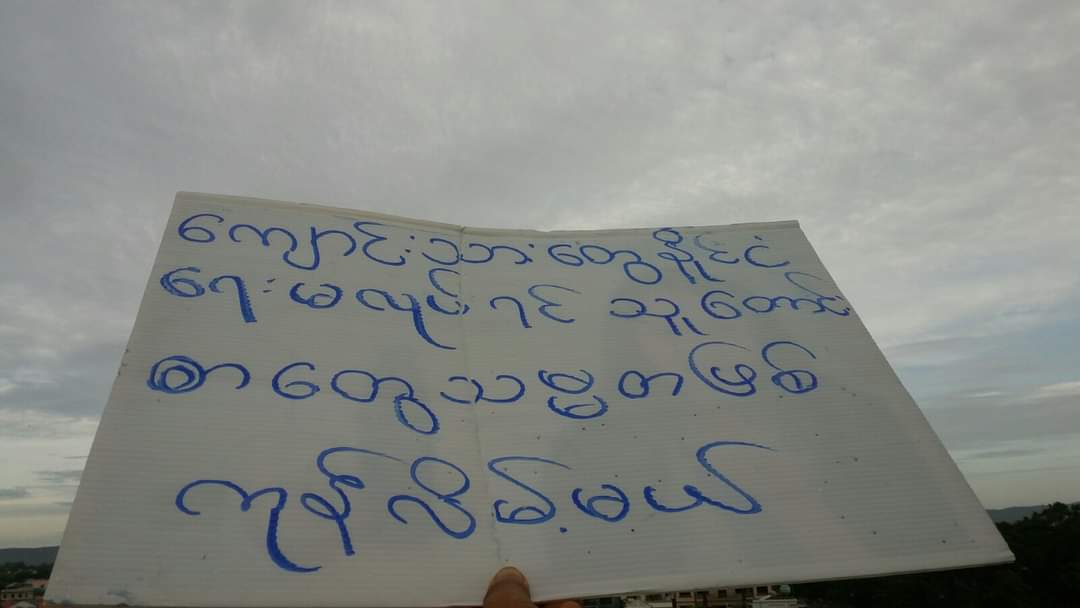 ကျောင်းသားတွေနိုင်ငံ
ရေးမလုပ်ရင် သူတောင်း
စာတွေသမ္မတဖြစ်
ကုန်လိမ့်မယ်